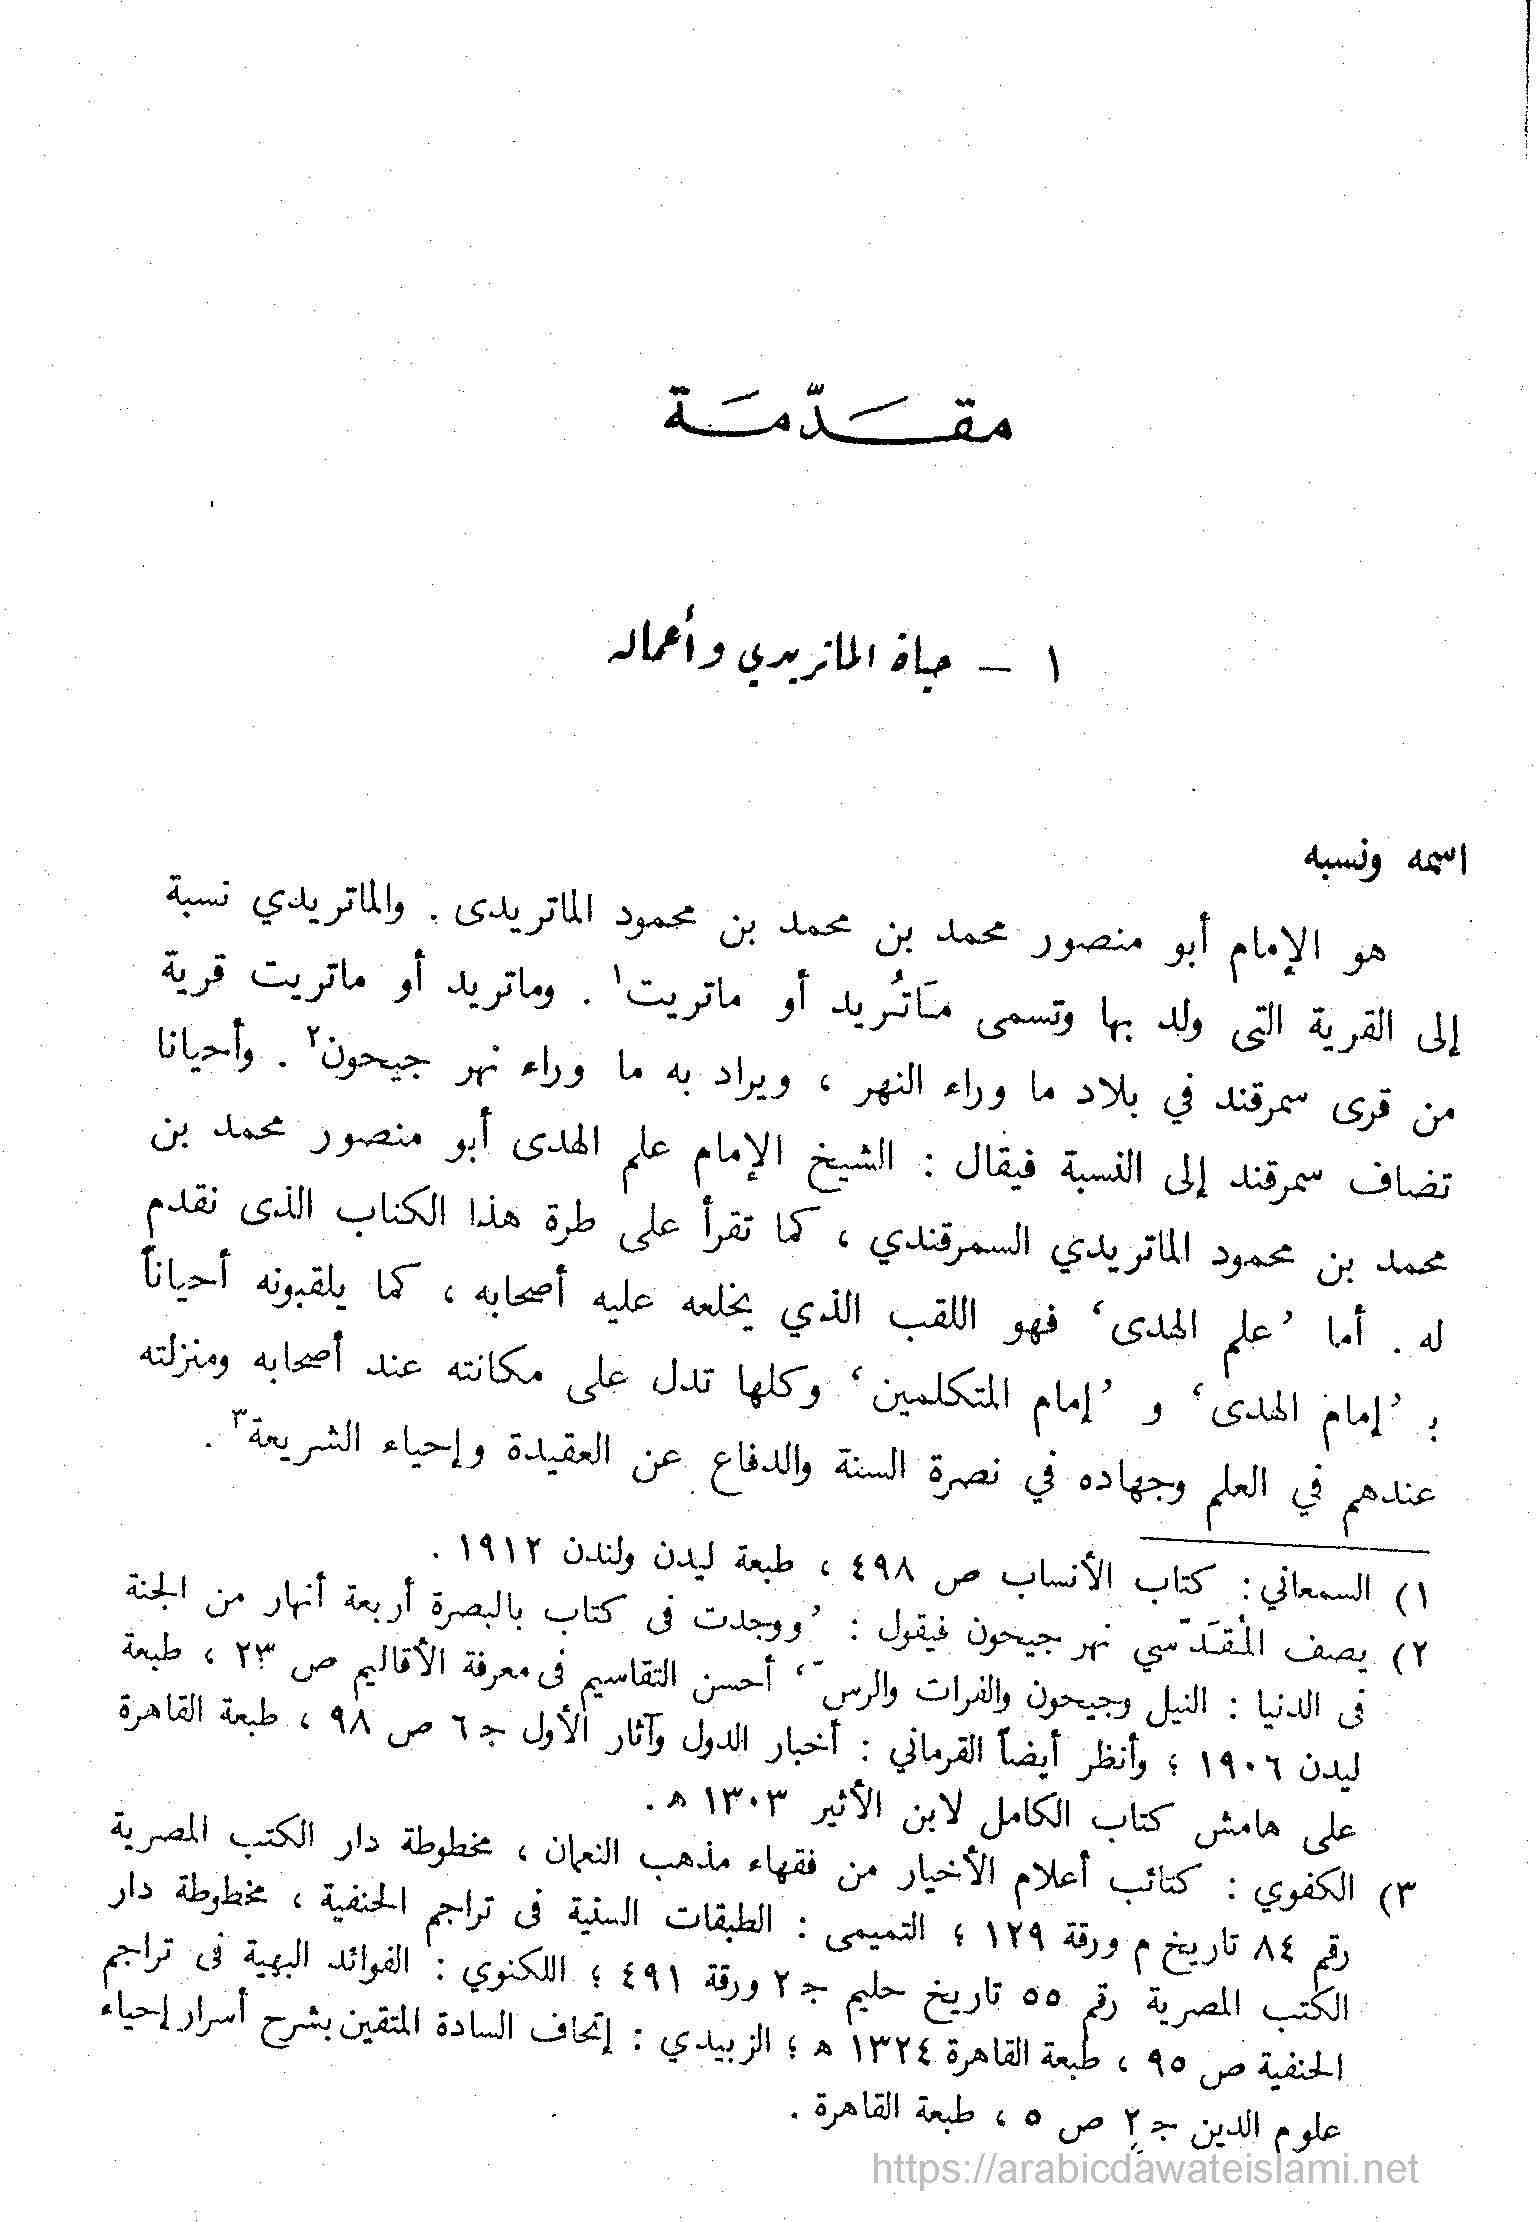 مقــدّمــة
١ – حياة الماتريدي وأعماله
اسمه ونسبه
هو الإمام أبو منصور محمد بن محمد بن محمود الماتريدى . والماتريدي نسبة
إلى القرية التى ولد بها وتسمى مَاتُريد أو ماتريت١ . وماتريد أو ماتريت قرية
من قرى سمرقند في بلاد ما وراء النهر ، ويراد به ما وراء نهر جيحون٢ . وأحيانا
تضاف سمرقند إلى النسبة فيقال : الشيخ الإمام علم الهدى أبو منصور محمد بن
محمد بن محمود الماتريدي السمرقندي ، كما تقرأ على طرة هذا الكتاب الذى نقدم
له . أما ’علم الهدى‘ فهو اللقب الذي يخلعه عليه أصحابه ، كما يلقبونه أحياناً
بـ ’إمام الهدى‘ و ’إمام المتكلمين‘ وكلها تدل على مكانته عند أصحابه ومنزلته
عندهم في العلم وجهاده في نصرة السنة والدفاع عن العقيدة وإحياء الشريعة٣ .
١) السمعاني : كتاب الأنساب ص ٤٩٨ ، طبعة ليدن ولندن ١٩١٢ .
٢) يصف المْقَدّسي نهر جيحون فيقول : ’ووجدت فى كتاب بالبصرة أربعة أنهار من الجنة
فى الدنيا : النيل وجيحون والفرات والرسّ‘ ، أحسن التقاسيم فى معرفة الأقاليم ص ٢٣ ، طبعة
ليدن ١٩٠٦ ؛ وأنظر أيضاً القرماني : أخبار الدول وآثار الأول جـ ٦ ص ٩٨ ، طبعة القاهرة
على هامش كتاب الكامل لابن الأثير ١٣٠٣ هـ .
٣) الكفوي : كتائب أعلام الأخيار من فقهاء مذهب النعمان ، مخطوطة دار الكتب المصرية
رقم ٨٤ تاريخ م ورقة ١٢٩ ؛ التميمى : الطبقات السنية فى تراجم الحنفية ، مخطوطة دار
الكتب المصرية رقم ٥٥ تاريخ حليم جـ ٢ ورقة ٤٩١ ؛ اللكنوي : الفوائد البهية فى تراجم
الحنفية ص ٩٥ ، طبعة القاهرة ١٣٢٤ هـ ؛ الزبيدي : إتحاف السادة المتقين بشرح أسرار إحياء
علوم الدين جـ ٢ ص ٥ ، طبعة القاهرة .
https://arabicdawateislami.net